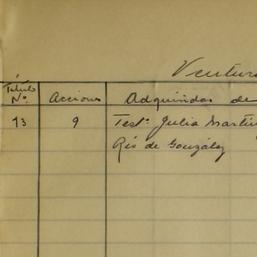 Ventura
Titulo No. Acciones Adquiridas de
73 9 Testa. Julia Martin
Rís de González